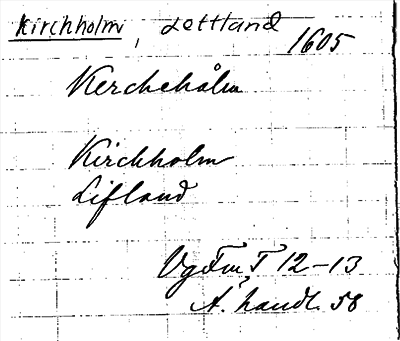 Kirchholm, Lettland
1605
Kerckehålm
Kirchholm
Lifland
VgFmT 12-13
A. handl. 58